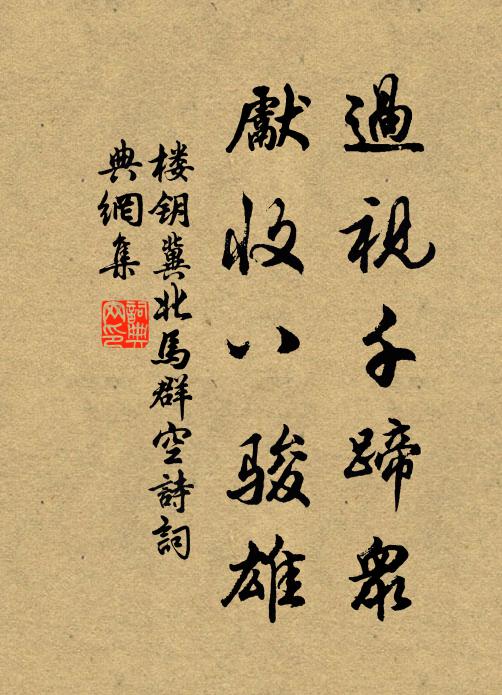 過視千蹄眾
獻收八駿雄
楼钥冀北馬群空詩詞
典網集
詞典
网印